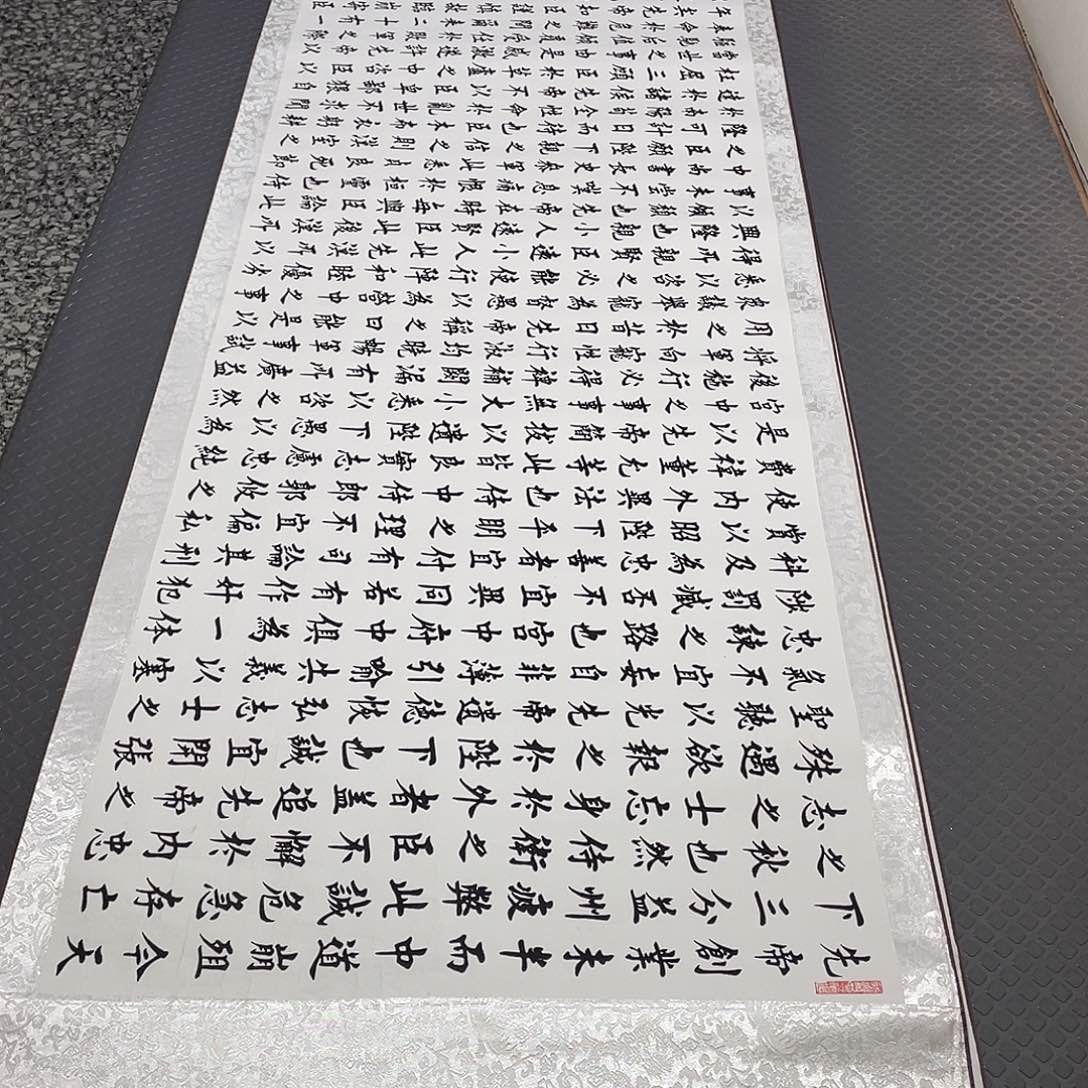 先帝創業未半而中道崩殂今天
下三分益州疲弊此誠危急存亡
之秋也然侍衛之臣不懈於內忠
志之士忘身於外者蓋追先帝之
殊遇欲報之於陛下也誠宜開張
聖聽以光先帝遺德恢弘志士之
氣不宜妄自菲薄引喻失義以塞
忠諫之路也宮中府中俱為一体
陟罰臧否不宜異同若有作奸犯
科及為忠善者宜付有司論其刑
賞以昭陛下平明之理不宜偏私
使內外異法也侍中侍郎郭攸之
費禕董允等此皆良實志慮忠純
是以先帝簡拔以遺陛下愚以為
宮中之事事無大小悉以咨之然
後施行必得裨補闕漏有所廣益
將軍向寵性行淑均曉暢軍事試
用之於昔日先帝稱之曰能是以
眾議舉寵為督愚以為營中之事
悉以咨之必能使行陣和睦優劣
得所親賢臣遠小人此先漢所以
興隆也親小人遠賢臣此後漢所
以傾頹也先帝在時每與臣論此
事未嘗不嘆息痛恨於桓靈也侍
中尚書長史參軍此悉貞良死節
之臣願陛下親之信之則漢室之
隆可計日而待也臣本布衣躬耕